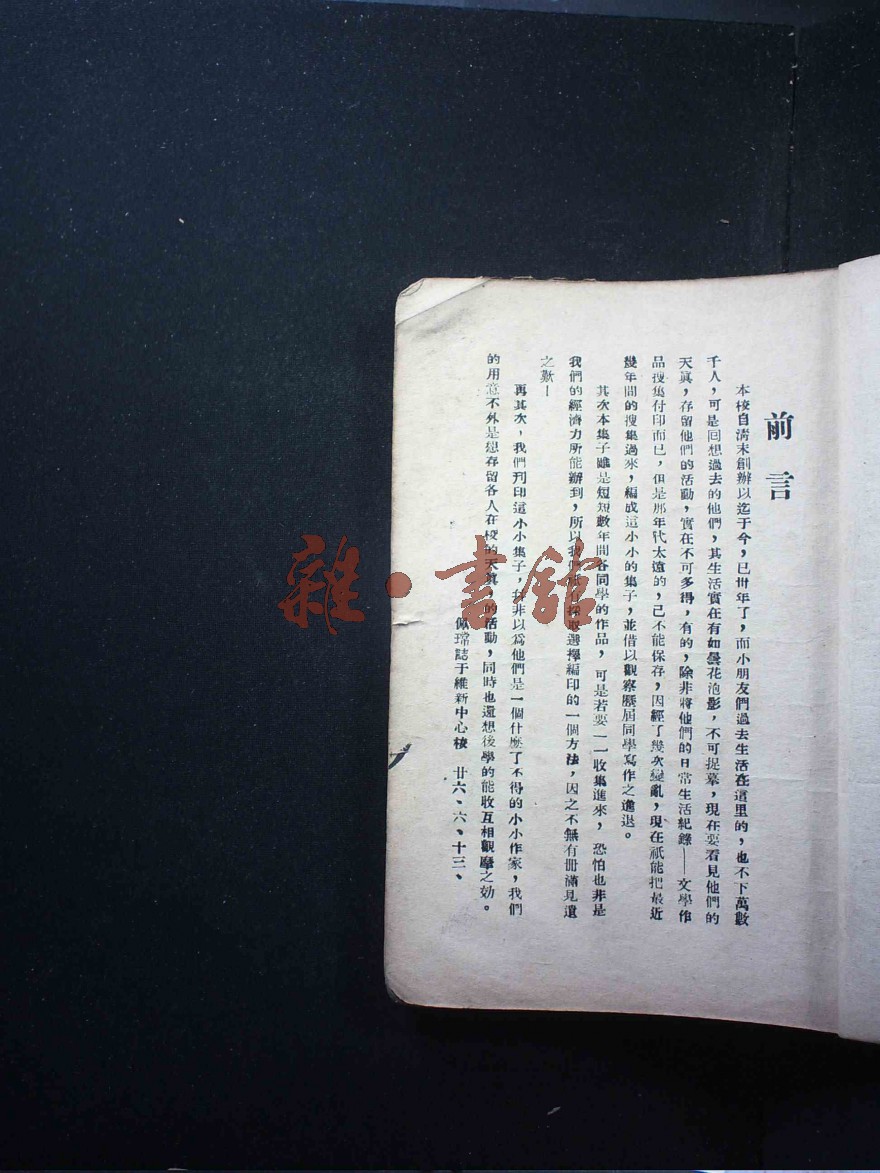 前言
本校自淸末創辦以迄于今，已卅年了，而小朋友們過去生活在這里的，也不下萬數
千人，可是回想過去的他們，其生活實在有如曇花泡影，不可捉摹，現在要看見他們的
天眞，存留他們的活動，實在不可多得，有的，除非將他們的日常生活紀錄——文學作
品搜集付印而已，但是那年代太遠的，已不能保存，因經了幾次變亂，現在祇能把最近
幾年間的搜集過來，編成這小小的集子，並借以觀察歷屆同學寫作之進退。
其次本集子雖是短短數年間各同學的作品，可是若要一一收集進來，恐怕也非是
我們的經濟力所能辦到，所以我採取選擇編印的一個方法，因之不無有冊滿見遺
之歎—
再其次，我們刊印這小小集子，非以爲他們是一個什麼了不得的小小作家，我們
的用意不外是想存留各人在校的天眞，的活動，同時也還想後學的能收互相觀摩之効。
佩瑺誌于維新中心校 廿六、六、十三、
雜·書館